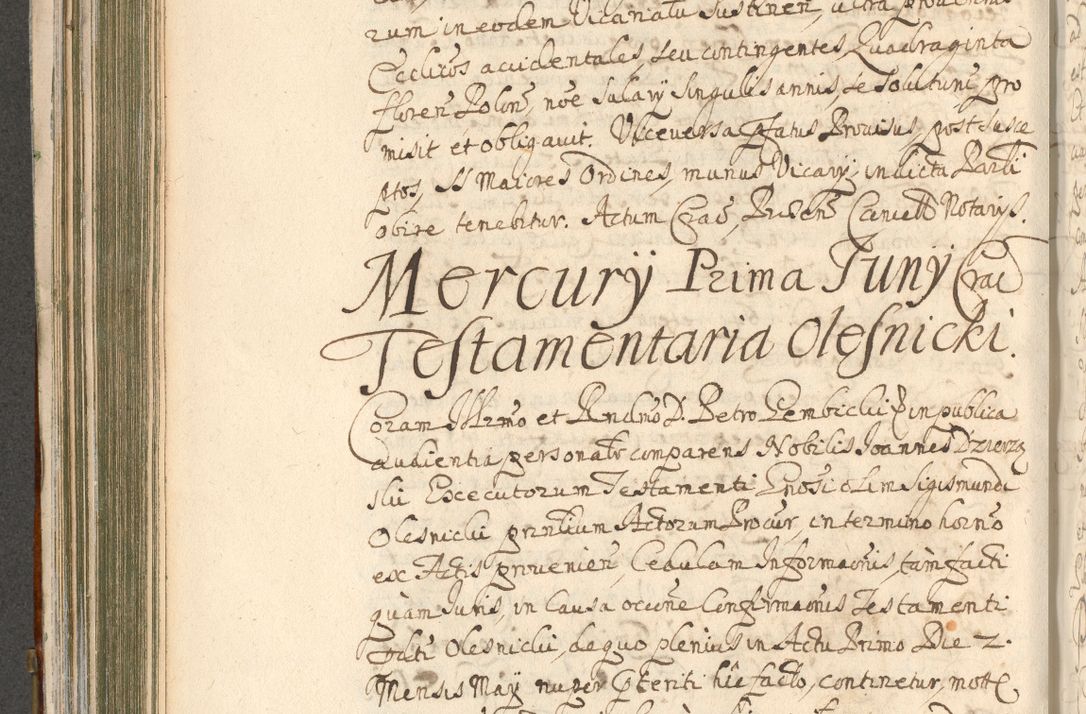 rum in eodem Vicariatu sustinen, ultra proventus
Ecclicos accidentales, seu contingentes, Quadraginta
floren Polon, noe Salarij singulis annis, se soluturu pro
misit et obligavit. Viceversa pfatus Provisus, post susce
ptos, SS Maiores Ordines, munus Vicarij, in dicta Parlli
obire tenebitur. Actum Crac, Pnsen Cancell Notarijs.
Mercurij Prima Junij Crac
Testamentaria Olesnicki.
Coram Illrmo et Rndmo D. Petro Gembicki &c in publica
audientia, personalr comparens Nobilis Joannes Dzierzg
ski Executorum Testamenti Gnosi olim Sigismundi
Olesnicki prntium Actorum Procur, in termino horno
ex Actis provenien, Cedulam Informaonis, tam facti
quam Juris, in Causa occone Confirmaonis Testamenti
pdti Olesnicki, de quo plenius in Actu Primo Die 2.
Mensis Maij nuper pteriti hic facto, continetur, mott